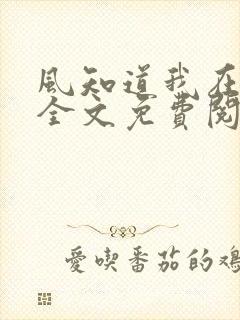 風知道我在
全文免費閱
愛喫番茄的鴻